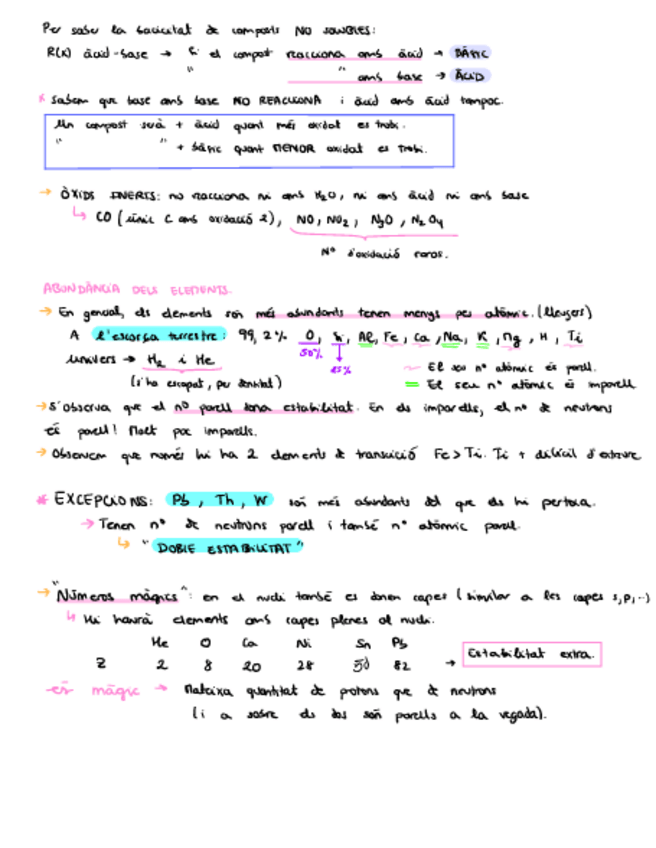 Per saber la basicitat de composts NO SOLUBLES:
R(x) àcid-base → Si el compost reacciona amb àcid → BÀSIC
" " amb base → ÀCID
* Sabem que base amb base NO REACCIONA i àcid amb àcid tampoc.
Un compost serà + àcid quant més oxidat es trobi.
" " + bàsic quant MENOR oxidat es trobi.
→ ÒXIDS INERTS: no reacciona ni amb H₂O, ni amb àcid ni amb base
↳ CO (únic C amb oxidació 2), NO, NO₂, N₂O, N₂O₄
Nº d'oxidació raros.
ABUNDÀNCIA DELS ELEMENTS.
→ En general, els elements són més abundants tenen menys pes atòmic. (lleugers)
A l'escorça terrestre: 99,2% O, Si, Al, Fe, Ca, Na, K, Mg, H, Ti
50% 25%
Univers → H₂ i He
~ El seu nº atòmic és parell.
(s'ha escapat, per densitat)
= El seu nº atòmic és imparell
→ S'observa que el nº parell dona estabilitat. En els imparells, el nº de neutrons
és parell! Molt poc imparells.
→ Observem que només hi ha 2 elements de transició Fe > Ti. Ti + difícil d'extreure
* EXCEPCIONS: Pb, Th, W són més abundants del que els hi pertoca.
→ Tenen nº de neutrons parell i també nº atòmic parell.
↳ "DOBLE ESTABILITAT"
→ "Números màgics": en el nucli també es donen capes (similar a les capes s,p,..)
↳ Hi haurà elements amb capes plenes al nucli.
He O Ca Ni Sn Pb
Z 2 8 20 28 50 82 → Estabilitat extra.
és màgic → Mateixa quantitat de protons que de neutrons
(i a sobre els dos són parells a la vegada).